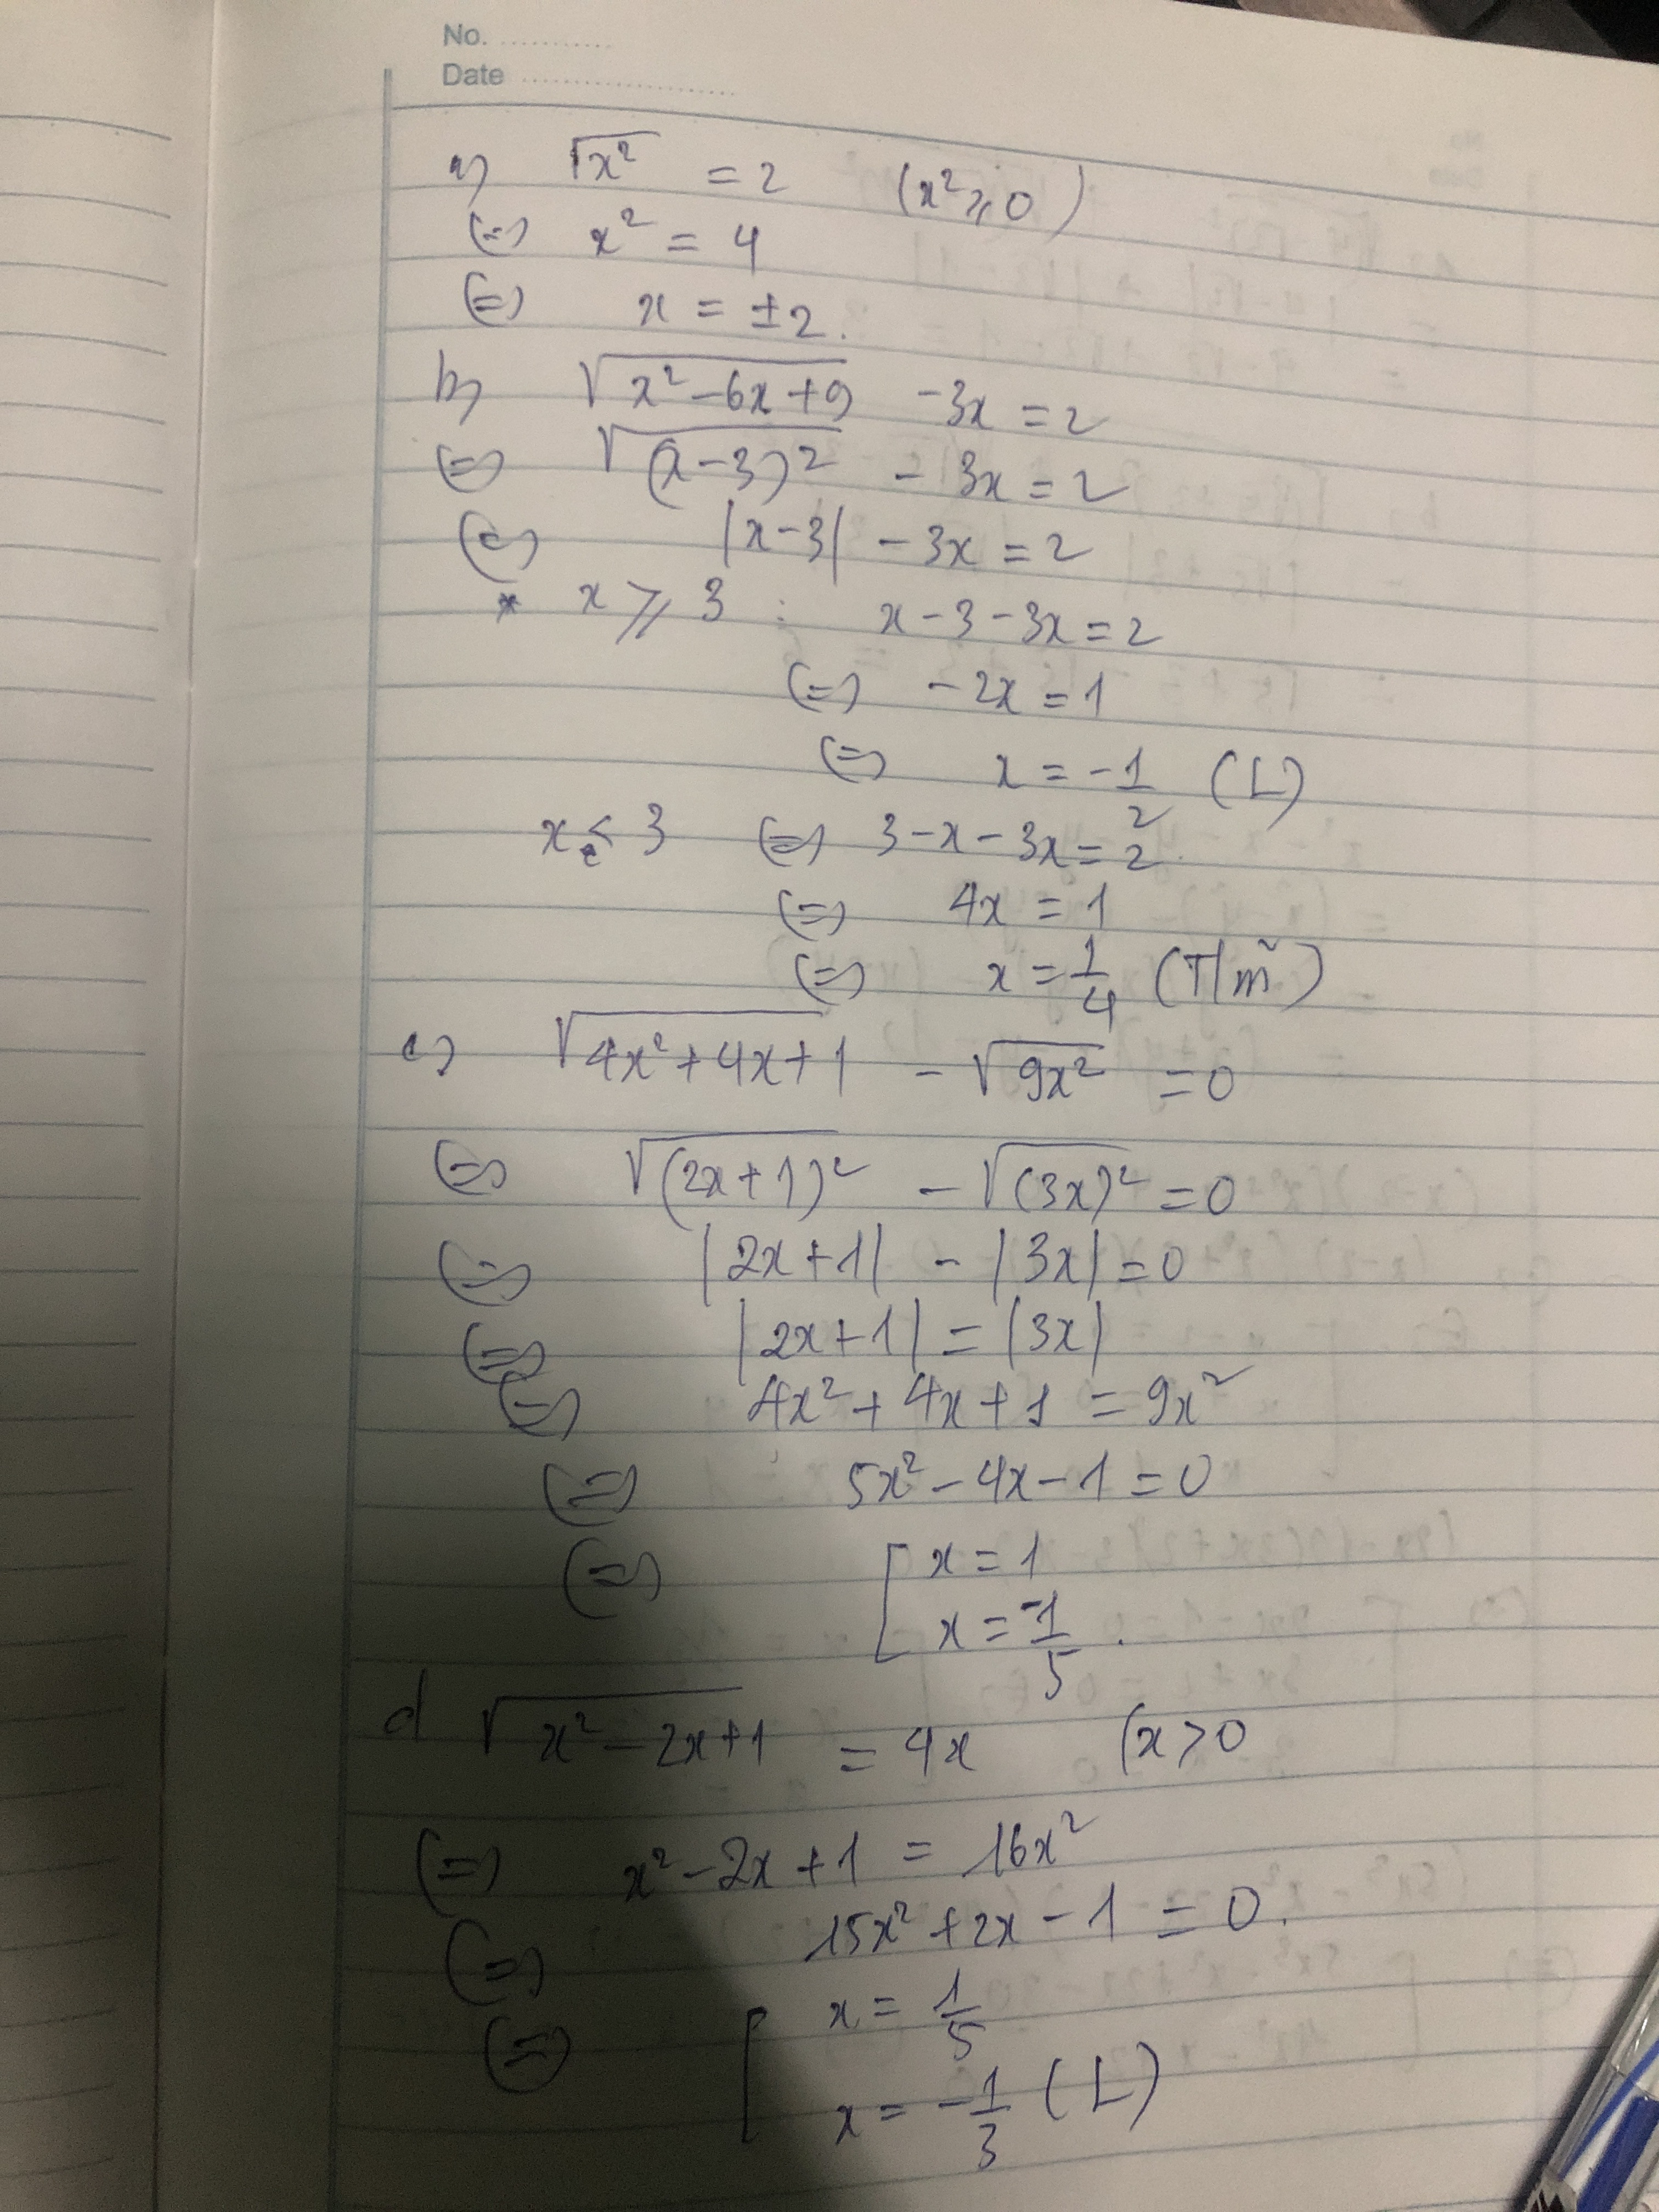 No. ............
Date ......................
a) √x² = 2 (x² ≥ 0)
(=) x² = 4
(=) x = ±2.
b) √x² - 6x + 9 - 3x = 2
(=) √(x-3)² - 3x = 2
(=) |x-3| - 3x = 2
* x ≥ 3 : x - 3 - 3x = 2
(=) -2x = 1
(=) x = -1/2 (L)
x ≤ 3 (=) 3 - x - 3x = 2.
(=) 4x = 1
(=) x = 1/4 (T/m~)
c) √4x² + 4x + 1 - √9x² = 0
(=) √(2x+1)² - √(3x)² = 0
(=) |2x+1| - |3x| = 0
(=) |2x+1| = |3x|
(=) 4x² + 4x + 1 = 9x²
(=) 5x² - 4x - 1 = 0
(=) [ x = 1
x = -1/5 .
d √x² - 2x + 1 = 4x (x > 0
(=) x² - 2x + 1 = 16x²
(=) 15x² + 2x - 1 = 0.
(=) [ x = 1/5
x = -1/3 (L)